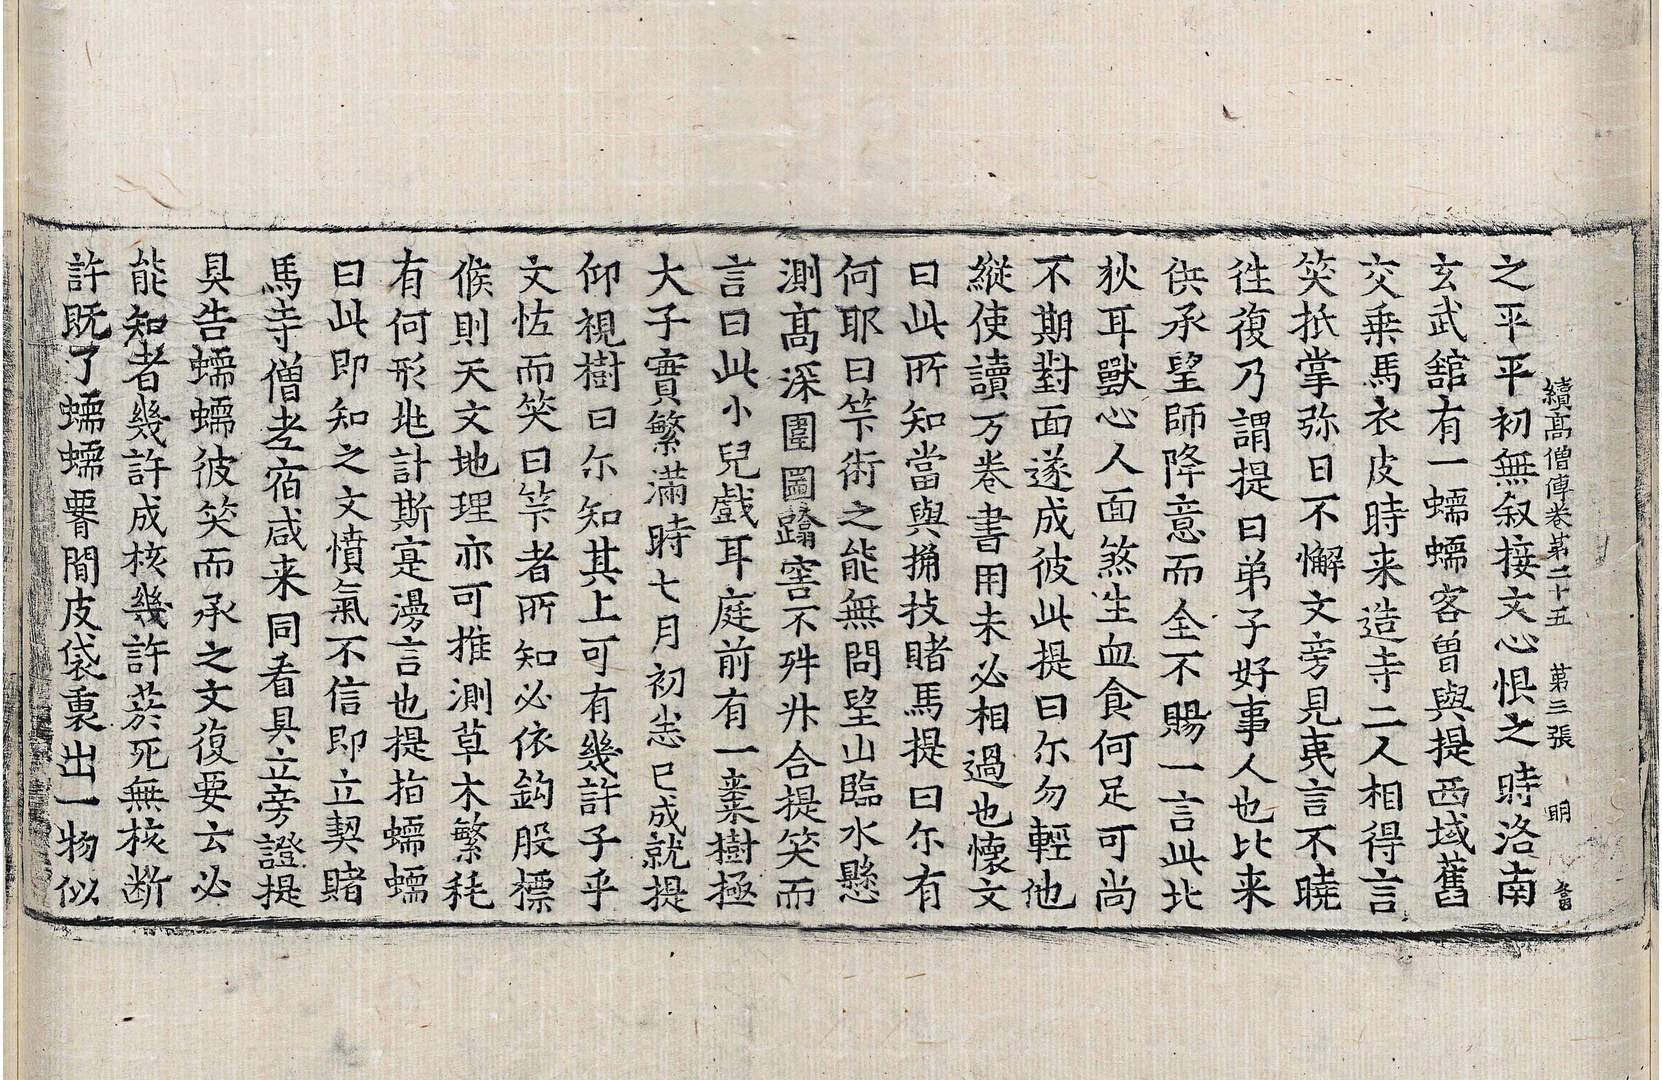 續高僧傳卷第二十五 第三張 明
之平平初無叙接文心恨之時洛南
玄武舘有一蠕蠕客曽與提西域舊
交乗馬衣皮時来造寺二人相得言
笑抵掌弥日不懈文旁見夷言不曉
徃復乃謂提曰弟子好事人也比来
供承望師降意而全不賜一言此北
狄耳獸心人面煞生血食何足可尚
不期對面遂成彼此提曰尓勿輕他
縱使讀万卷書用未必相過也懷文
曰此所知當與捔技賭馬提曰尓有
何耶曰竿術之能無問望山臨水懸
測髙深圍圖蹹窖不舛升合提笑而
言曰此小兒戲耳庭前有一棗樹極
大子實繁滿時七月初悉已成就提
仰視樹曰尓知其上可有幾許子乎
文恠而笑曰竿者所知必依鈎股標
候則天文地理亦可推測草木繁耗
有何形兆計斯寔漫言也提指蠕蠕
曰此即知之文憤氣不信即立契賭
馬寺僧老宿咸来同看具立旁證提
具告蠕蠕彼笑而承之文復要云必
能知者幾許成核幾許菸死無核断
許既了蠕蠕䙅間皮袋裏出一物似